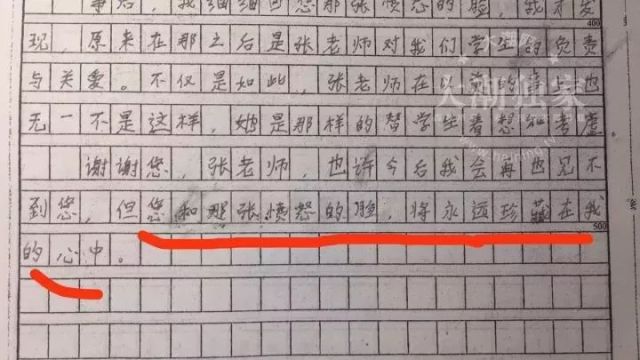 事后，我细细回想那张愤怒的脸，我才发
400
现，原来在那之后是张老师对我们学生的负责
与关爱。不仅是如此，张老师在以前的
也
无一不是这样，她是那样的替学生着想和考虑
谢谢您，张老师，也许今后我会再也见不
到您，但您和那张愤怒的脸，将永远珍藏在我
500
的心中。
大潮独家